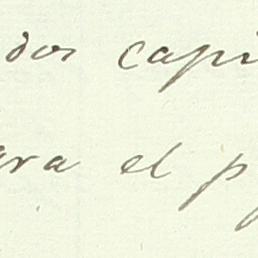 dos capi
ara el p